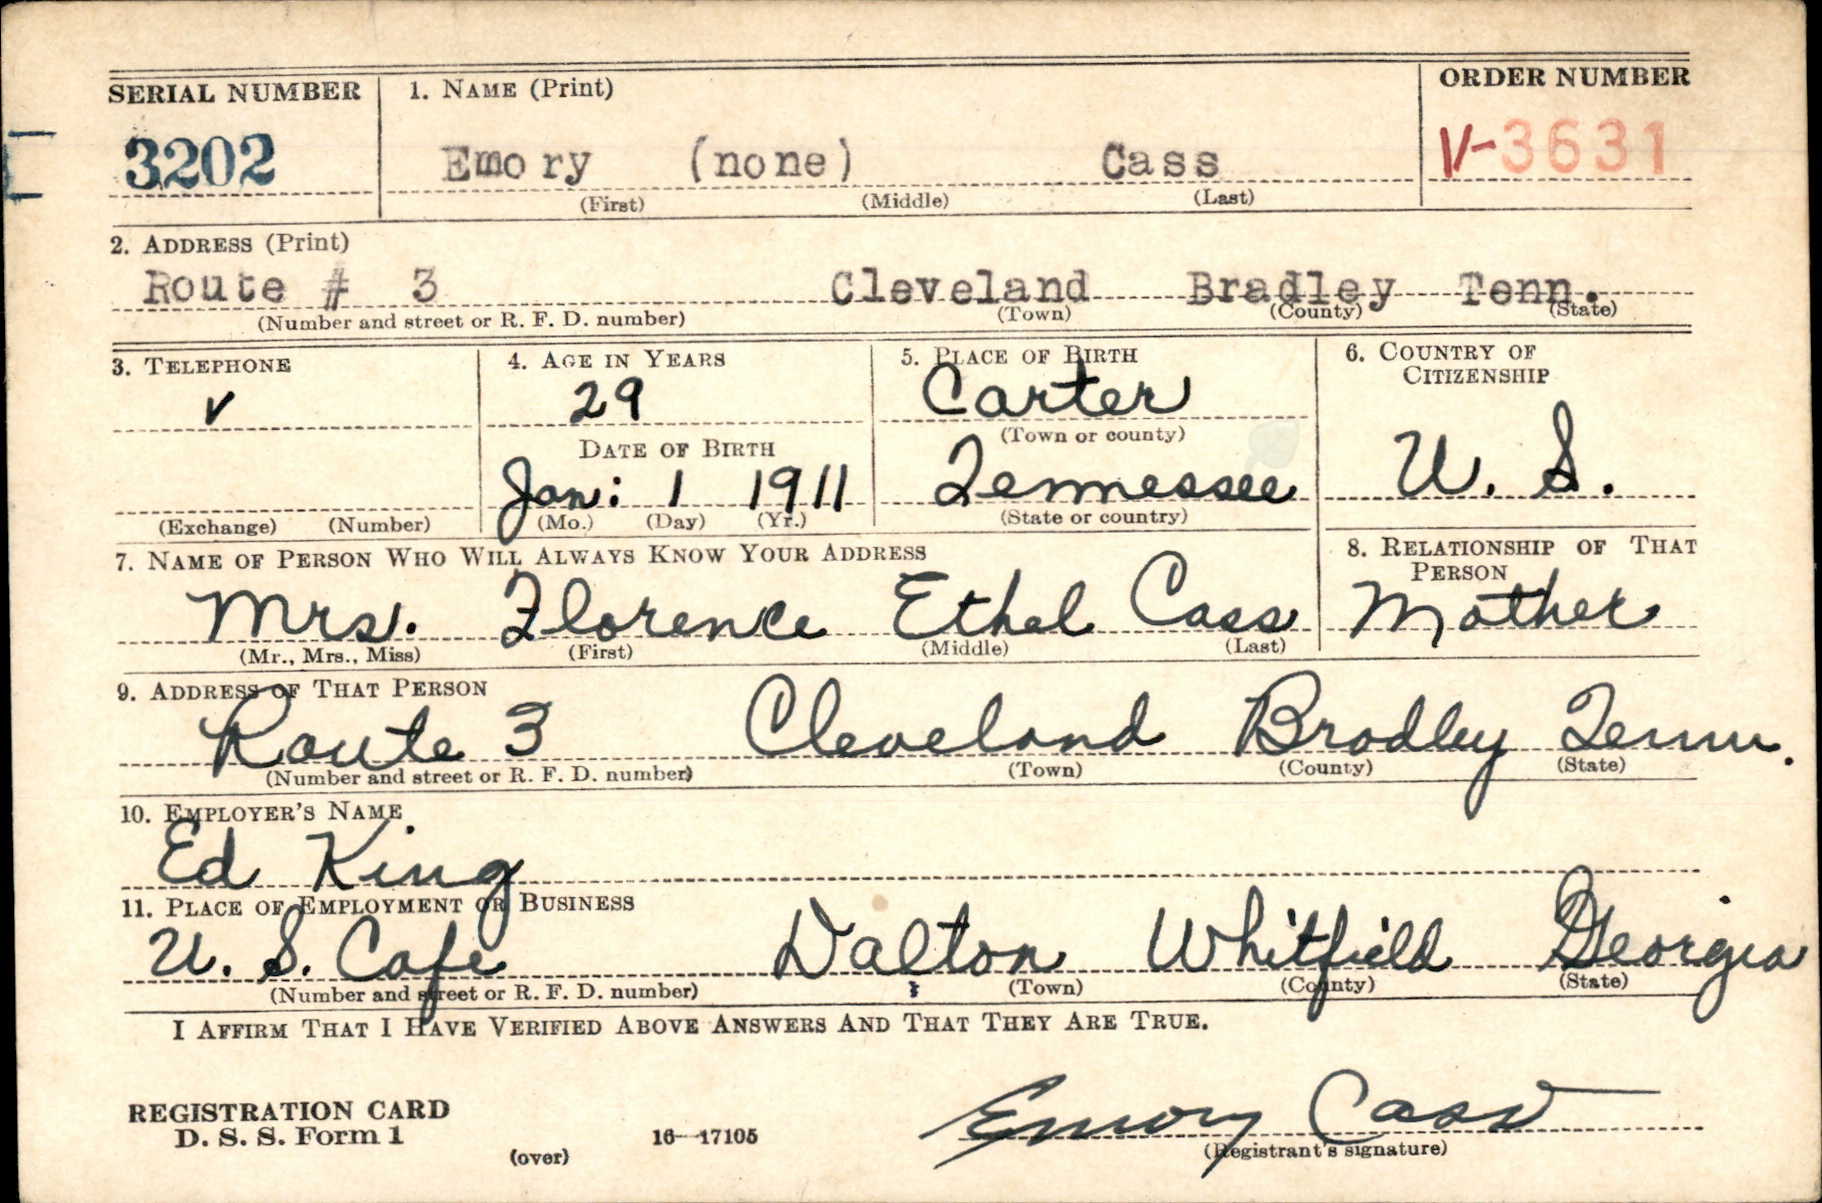 SERIAL NUMBER 1. NAME (Print) ORDER NUMBER
3202 Emory (none) Cass V-3631
(First) (Middle) (Last)
2. ADDRESS (Print)
Route # 3 Cleveland Bradley Tenn.
(Number and street or R. F. D. number) (Town) (County) (State)
3. TELEPHONE 4. AGE IN YEARS 5. PLACE OF BIRTH 6. COUNTRY OF
CITIZENSHIP
v 29 Carter
(Town or county)
DATE OF BIRTH
Jan: 1 1911 Tennessee U. S.
(Exchange) (Number) (Mo.) (Day) (Yr.) (State or country)
7. NAME OF PERSON WHO WILL ALWAYS KNOW YOUR ADDRESS 8. RELATIONSHIP OF THAT
PERSON
Mrs. Florence Ethel Cass Mother
(Mr., Mrs., Miss) (First) (Middle) (Last)
9. ADDRESS OF THAT PERSON
Route 3 Cleveland Bradley Tenn.
(Number and street or R. F. D. number) (Town) (County) (State)
10. EMPLOYER'S NAME
Ed King
11. PLACE OF EMPLOYMENT OR BUSINESS
U. S. Cafe Dalton Whitfield Georgia
(Number and street or R. F. D. number) (Town) (County) (State)
I AFFIRM THAT I HAVE VERIFIED ABOVE ANSWERS AND THAT THEY ARE TRUE.
Emory Cass
REGISTRATION CARD
D. S. S. Form 1 16—17105 (Registrant's signature)
(over)